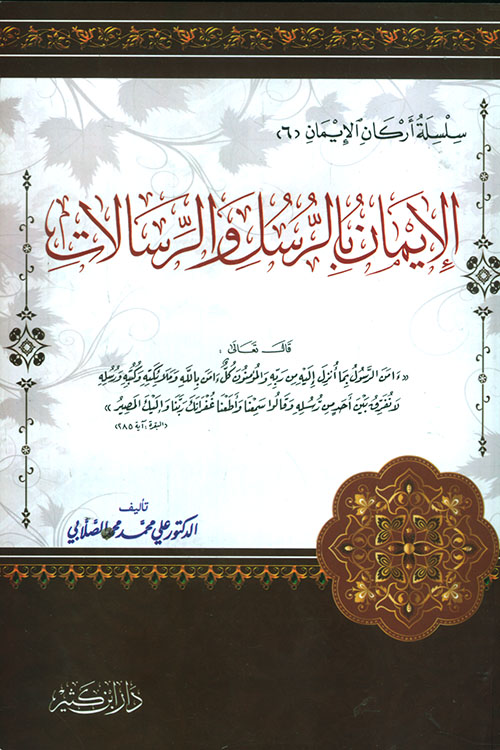 سِلْسِلَةُ أَرْكَانِ الإِيْمَانِ (٦)
الإِيمَانُ بِالرُّسُلِ وَالرِّسَالَاتِ
قَالَ تَعَالَىٰ :
«ءَامَنَ الرَّسُولُ بِمَا أُنْزِلَ إِلَيْهِ مِن رَبِّهِ وَالْمُؤْمِنُونَ كُلٌّ ءَامَنَ بِاللَّهِ وَمَلَائِكَتِهِ وَكُتُبِهِ وَرُسُلِهِ
لَا نُفَرِّقُ بَيْنَ أَحَدٍ مِن رُسُلِهِ وَقَالُوا سَمِعْنَا وَأَطَعْنَا غُفْرَانَكَ رَبَّنَا وَإِلَيْكَ الْمَصِيرُ»
(البقرة ، آية ٢٨٥)
تأليف
الدكتور علي محمد محمد الصَّلَّابي
دَارُ ابْنِ كَثِيْر